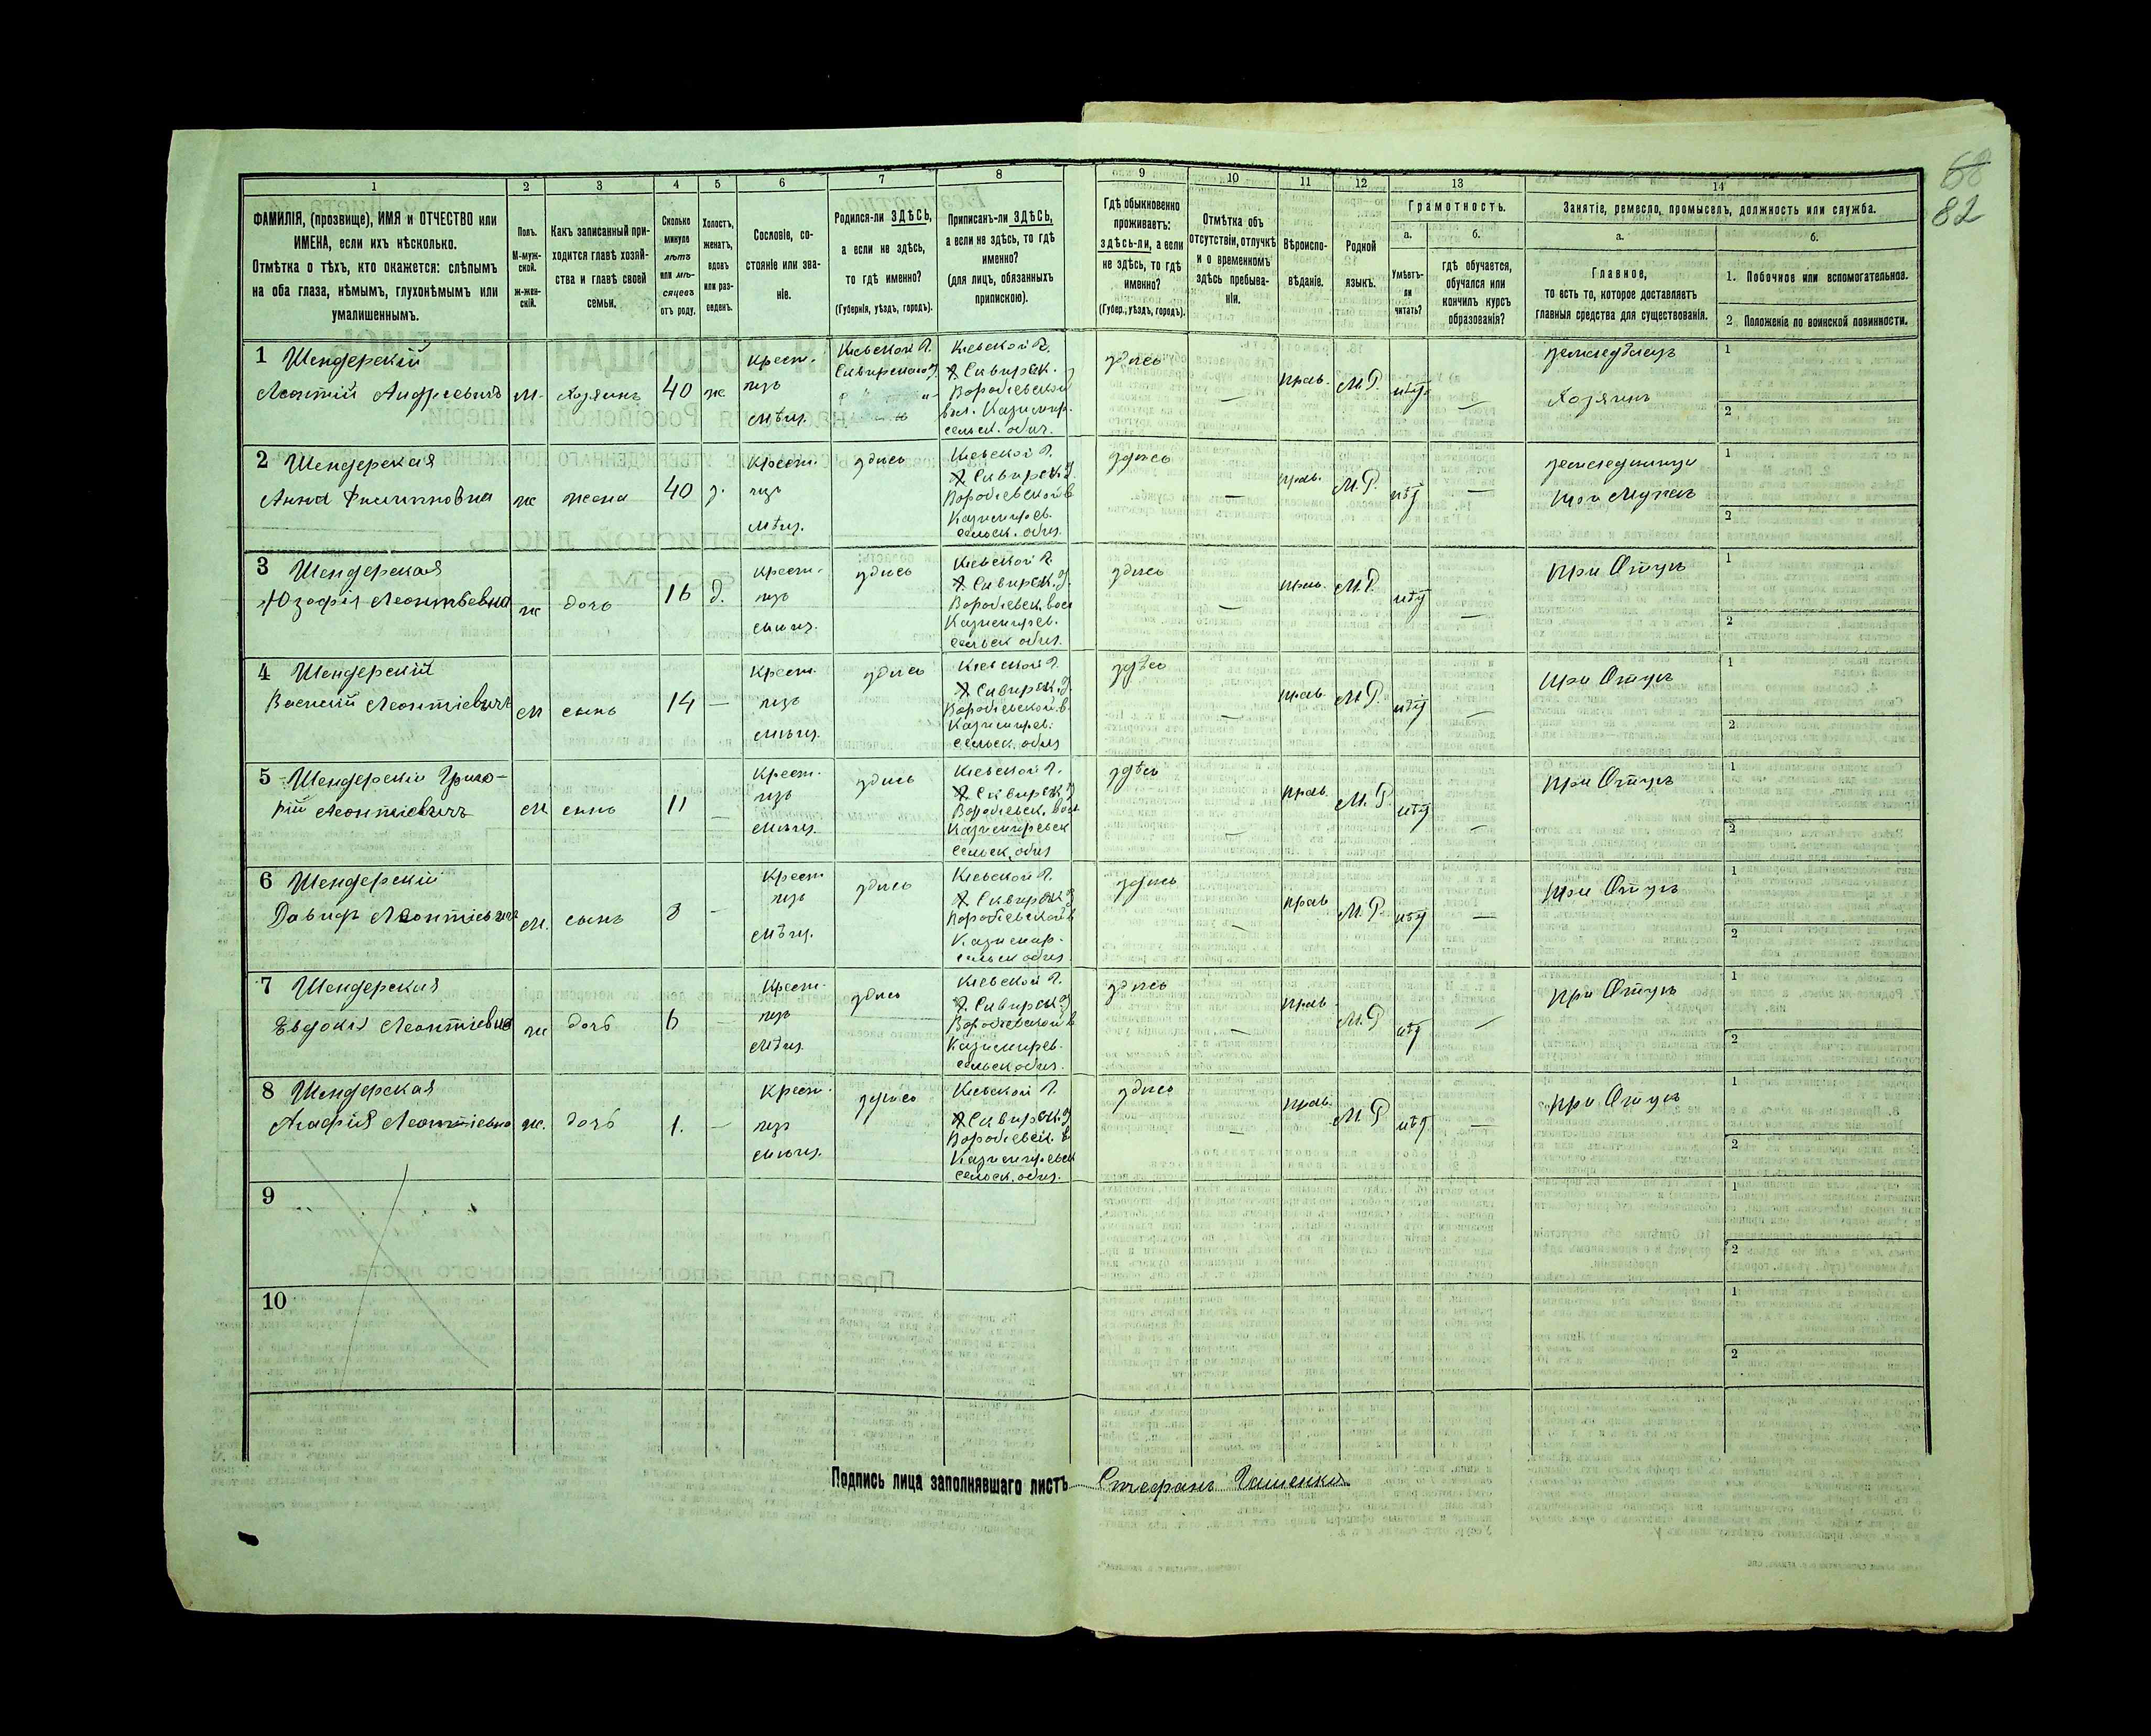 68
82
1 2 3 4 5 6 7 8 9 10 11 12 13 14
ФАМИЛІЯ, (прозвище), ИМЯ и ОТЧЕСТВО или
ИМЕНА, если ихъ нѣсколько.
Отмѣтка о тѣхъ, кто окажется: слѣпымъ
на оба глаза, нѣмымъ, глухонѣмымъ или
умалишеннымъ.
Полъ.
М-муж-
ской.
ж-жен-
скій.
Какъ записанный при-
ходится главѣ хозяй-
ства и главѣ своей
семьи.
Сколько
минуло
лѣтъ
или мѣ-
сяцевъ
отъ роду.
Холостъ,
женатъ,
вдовъ
или раз-
веденъ.
Сословіе, со-
стояніе или зва-
ніе.
Родился-ли ЗДѢСЬ,
а если не здѣсь,
то гдѣ именно?
(Губернія, уѣздъ, городъ).
Приписанъ-ли ЗДѢСЬ,
а если не здѣсь, то гдѣ
именно?
(для лицъ, обязанныхъ
припискою).
Гдѣ обыкновенно
проживаетъ:
здѣсь-ли, а если
не здѣсь, то гдѣ
именно?
(Губер., уѣздъ, городъ).
Отмѣтка объ
отсутствіи, отлучкѣ
и о временномъ
здѣсь пребыва-
ніи.
Вѣроиспо-
вѣданіе.
Родной
языкъ.
Грамотность.
а.
Умѣетъ-
ли
читать?
б.
гдѣ обучается,
обучался или
кончилъ курсъ
образованія?
Занятіе, ремесло, промыселъ, должность или служба.
а.
Главное,
то есть то, которое доставляетъ
главныя средства для существованія.
б.
1. Побочное или вспомогательное.
2. Положеніе по воинской повинности.
1 Шендерскій
Леонтій Андреевичъ
М.
Хозяинъ
40
ж
Крест.
изъ
мѣщ.
Кіевской Г.
Сквирскаго у.
Кіевской Г.
Сквирск. у
Воробіевской
вол. Казимир.
сельск. общ.
здѣсь
—
прав.
М.Р.
нѣтъ
—
земледѣлецъ
Хозяинъ
1
2
2 Шендерская
Анна Филипповна
ж
жена
40
з.
Крест.
изъ
мѣщ.
здѣсь
Кіевской Г.
Сквирск. у.
Воробіевской в
Казимирев.
сельск. общ.
здѣсь
—
прав.
М.Р.
нѣтъ
—
при Мужѣ
1
2
3 Шендерская
Юзофія Леонтьевна
ж
дочь
16
д.
Крест.
изъ
мѣщ.
здѣсь
Кіевской Г.
Сквирск. у.
Воробіевск. вол
Казимирев.
сельск общ.
здѣсь
—
прав.
М.Р.
нѣтъ
—
при Отцѣ
1
2
4 Шендерскій
Василій Леонтіевичъ
М
сынъ
14
—
Крест.
изъ
мѣщ.
здѣсь
Кіевской Г.
Сквирск. у.
Воробіевской в.
Казимирев.
сельск. общ
здѣсь
—
прав.
М.Р.
нѣтъ
—
при Отцѣ
1
2
5 Шендерскій Григо-
рій Леонтіевичъ
М
сынъ
11
—
Крест.
изъ
мѣщ.
здѣсь
Кіевской Г.
Сквирск у
Воробіевск. вол
Казимиревск
сельск. общ
здѣсь
—
прав.
М.Р.
нѣтъ
—
при Отцѣ
1
2
6 Шендерскій
Давидъ Леонтіевичъ
М.
сынъ
8
—
Крест
изъ
мѣщ.
здѣсь
Кіевской Г.
Сквирск у
Воробіевской в
Казимир.
сельск общ
здѣсь
—
прав
М.Р.
нѣтъ
—
при Отцѣ
1
2
7 Шендерская
Евдокія Леонтіевна
ж
дочь
6
—
Крест.
изъ
мѣщ.
здѣсь
Кіевской Г.
Сквирск у
Воробіевской в
Казимирев.
сельск общ.
здѣсь
—
прав.
М.Р
нѣтъ
—
при Отцѣ
1
2
8 Шендерская
Агафія Леонтіевна
ж.
дочь
1.
—
Крест.
изъ
мѣщ.
здѣсь
Кіевской Г.
Сквирск. у
Воробіевск. в
Казимиревск
сельск. общ.
здѣсь
—
прав.
М.Р
нѣтъ
—
при Отцѣ
1
2
9
1
2
10
1
2
Подпись лица заполнявшаго листъ Стефанъ